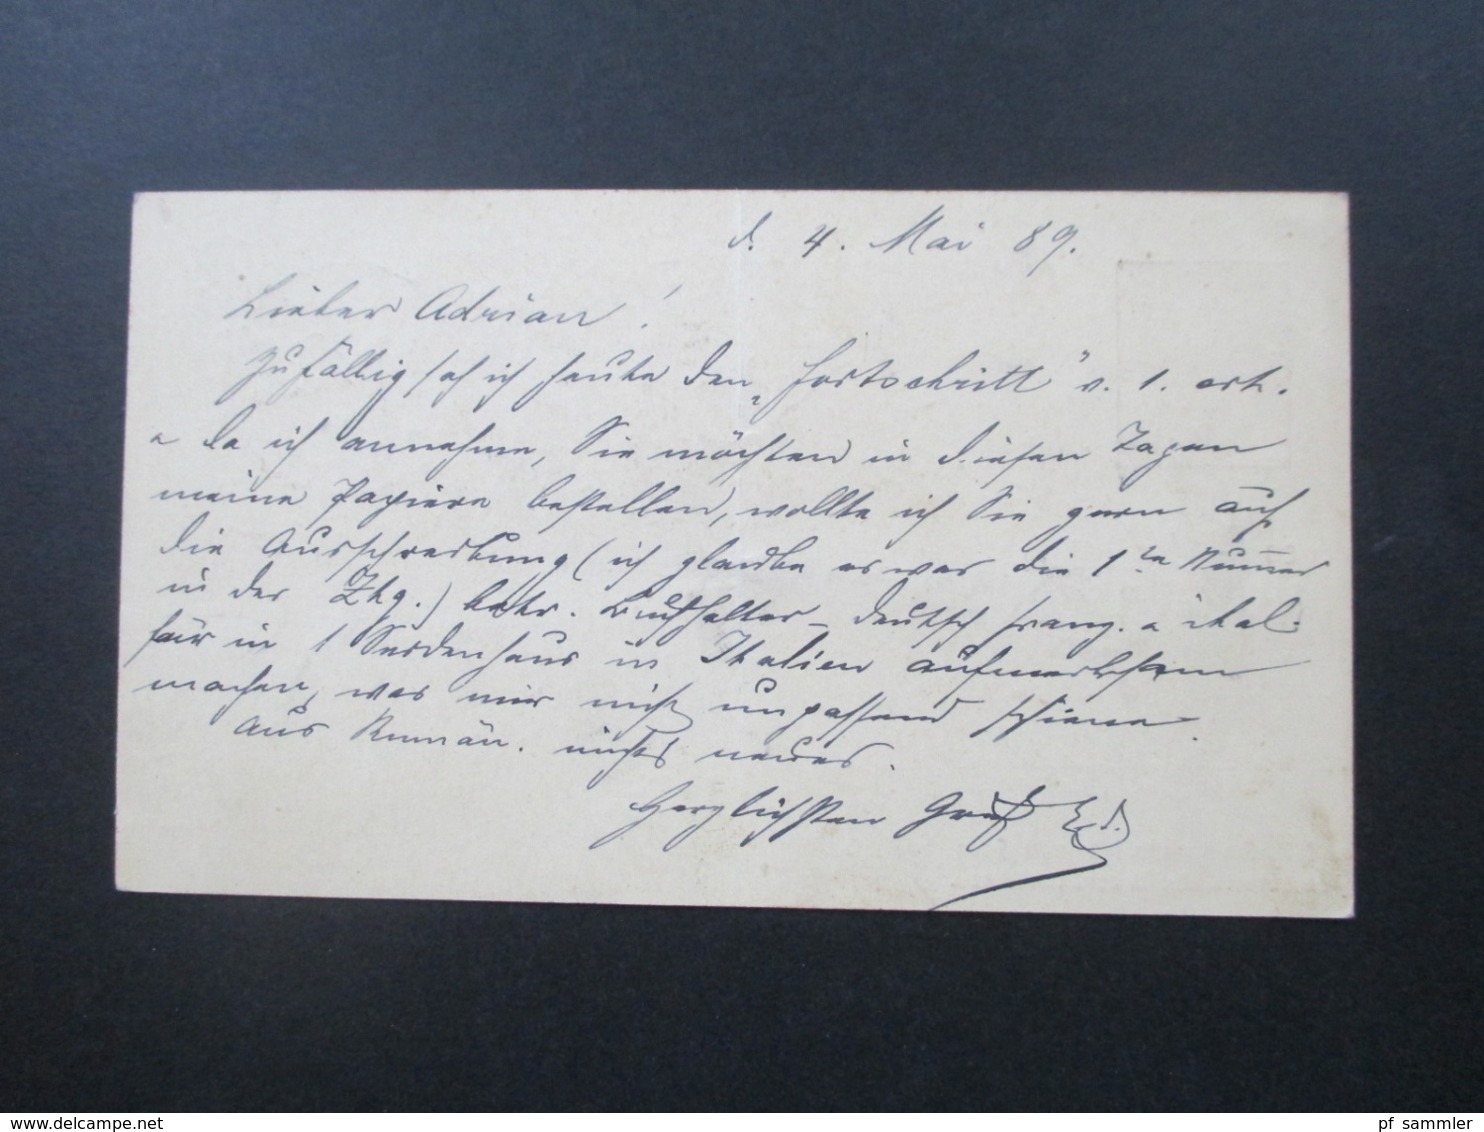 d. 4. Mai 89.
Lieber Adrian!
Zufällig sah ich heute den „Fortschritt" v. 1. crt.
u da ich annehme, Sie möchten in diesen Tagen
meine Papiere bestellen, wollte ich Sie gern auf
die Ausschreibung (ich glaube es war die 1te Nummer
in der Ztg.) betr. Buchhalter – deutsch franz. u ital.
für in 1 Seidenhaus in Italien aufmerksam
machen, was mir nicht unpassend schiene.
Aus Rumän. nichts neues.
Herzlichsten Gruß Ed.
delcampe.net
pf_sammler